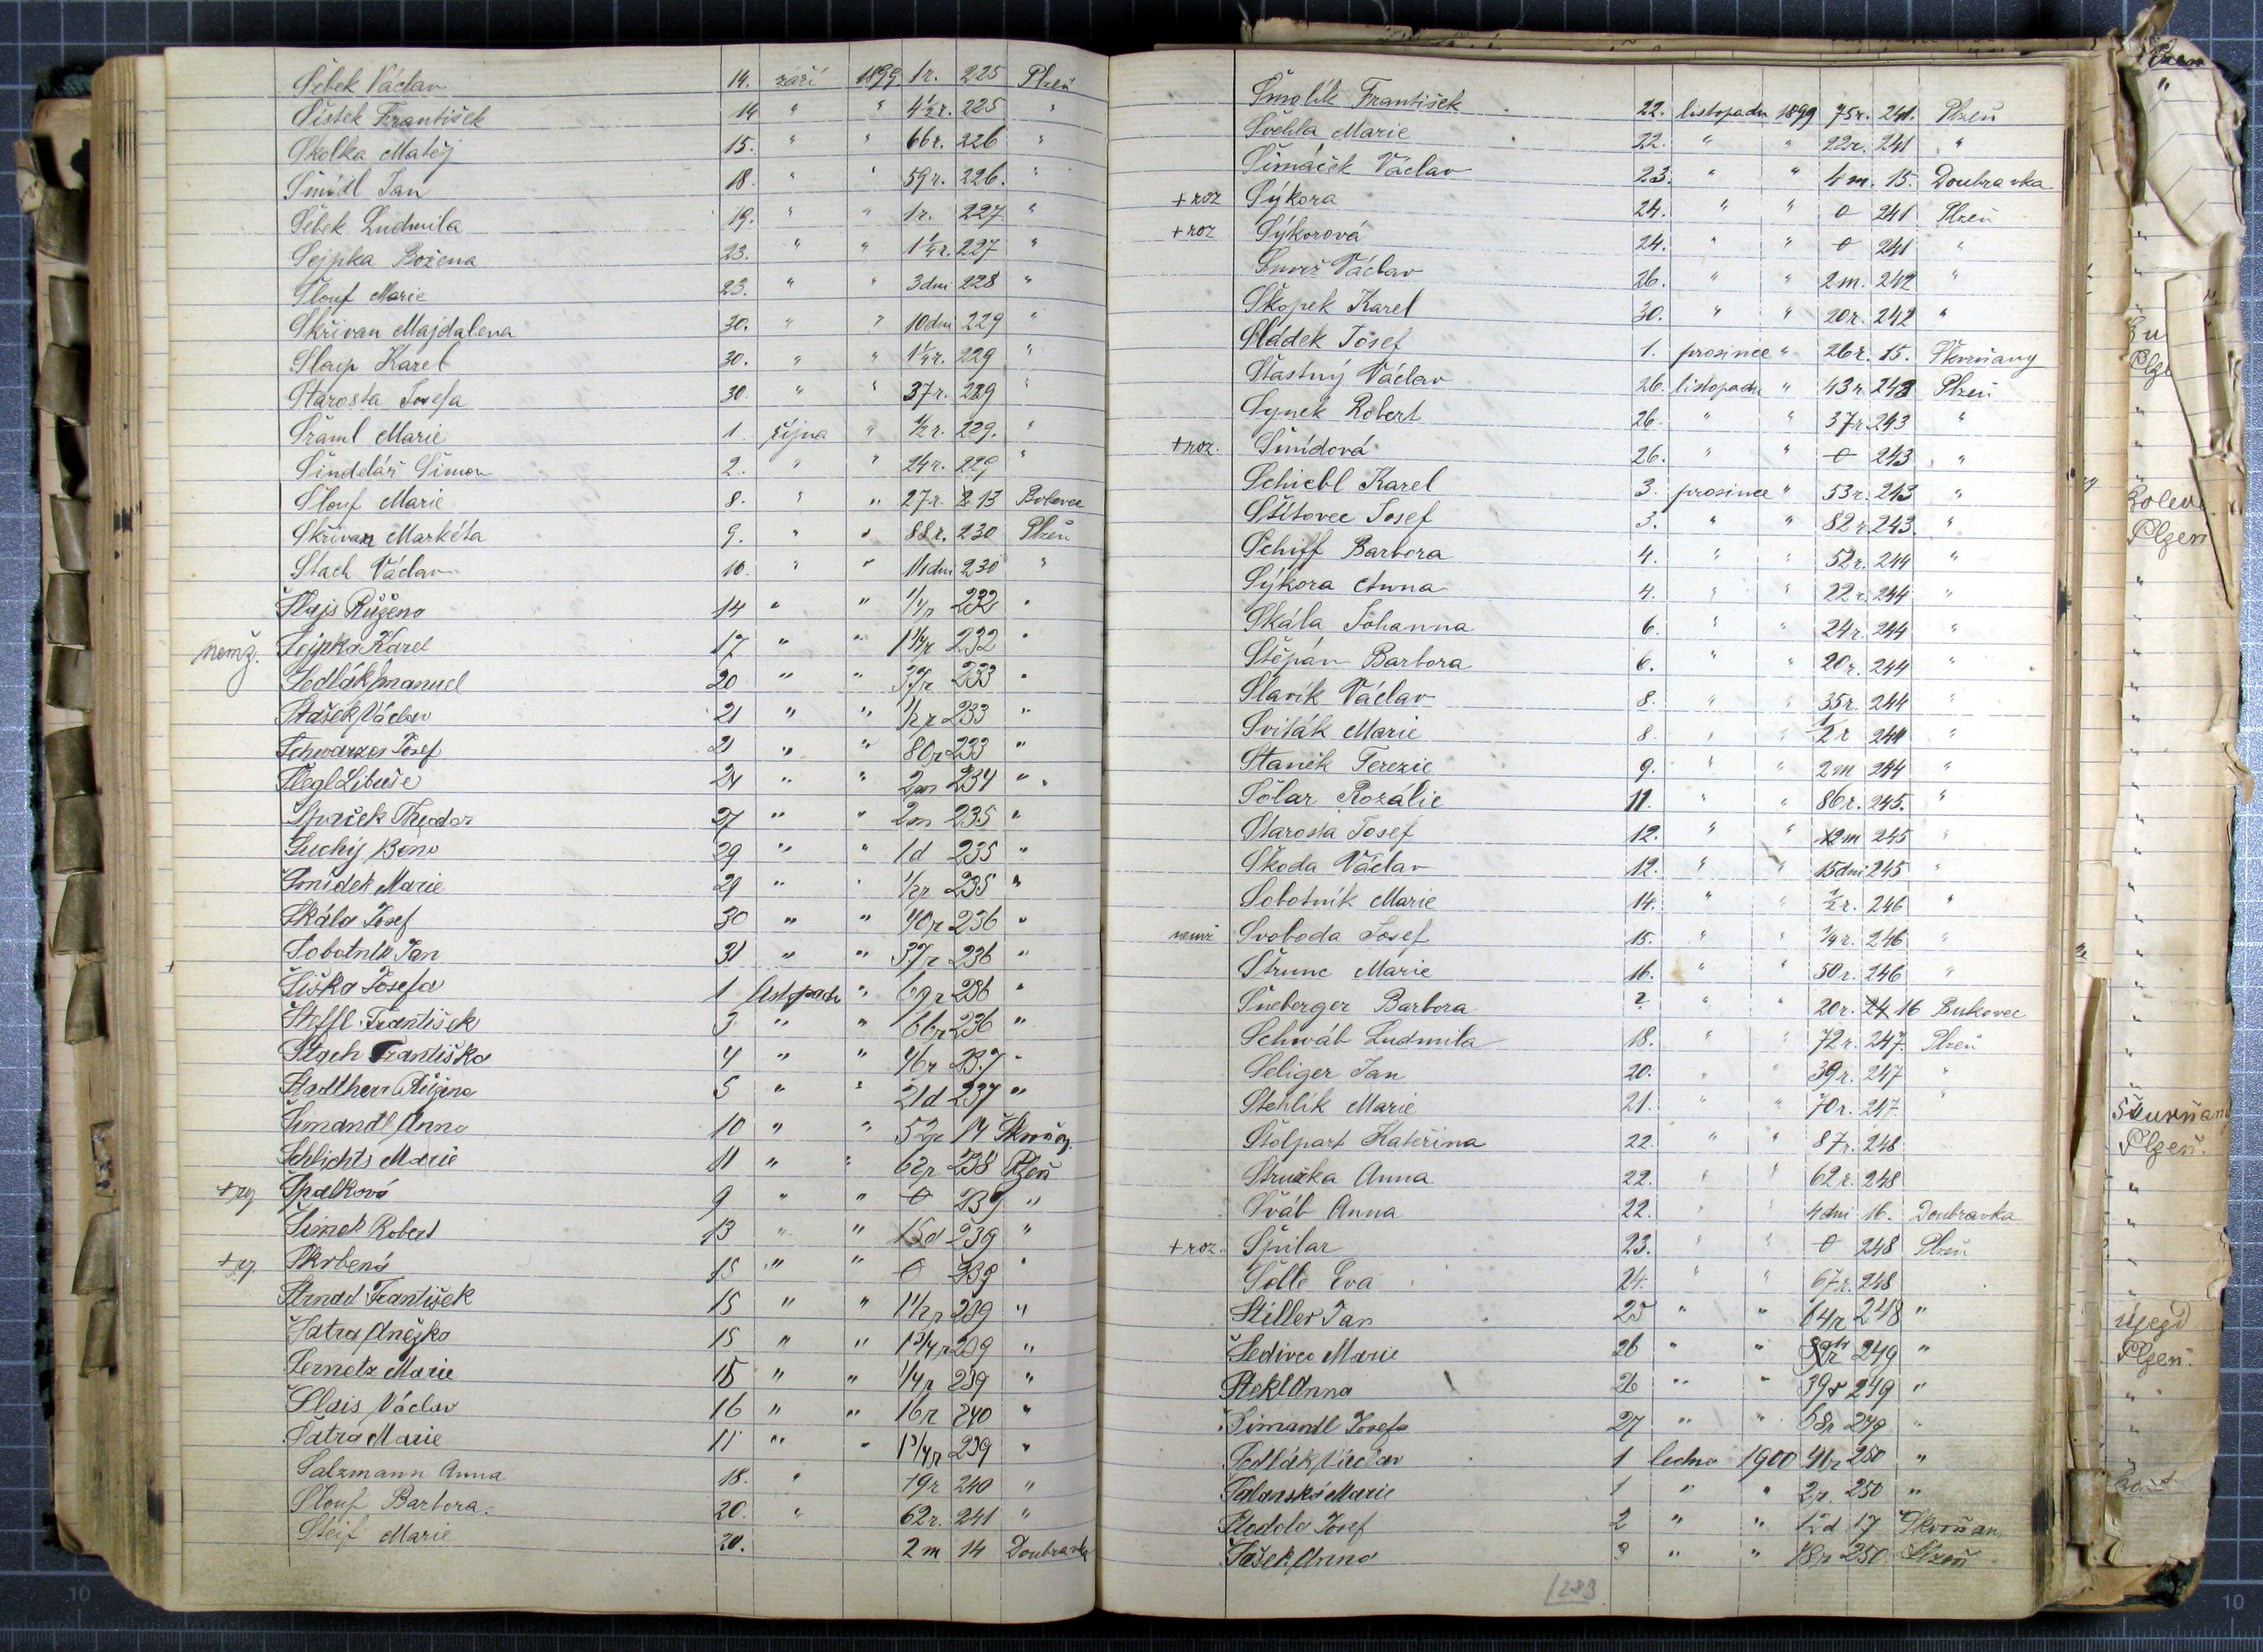 Šebek Václav 14. září 1899. 1r. 225 Plzeň
Šístek František 14 " " 4½r. 225 "
Skolka Matěj 15. " " 66r. 226 "
Šmídl Jan 18. " " 59r. 226. "
Šebek Ludmila 19. " " 1r. 227 "
Šejpka Božena 23. " " 1¼r. 227 "
Šlouf Marie 23. " " 3dni 228 "
Skřivan Majdalena 30. " " 10dni 229 "
Sloup Karel 30. " " 1¼r. 229 "
Starosta Josefa 30. " " 37r. 229 "
Šraml Marie 1. října " ½r. 229. "
Šindelář Šimon 2. " " 24r. 229 "
Šlouf Marie 8. " " 27r. 13 Bolevec
Skřivan Markéta 9. " " 88r. 230 Plzeň
Stach Václav 10. " " 11dni 230 "
Šlajs Růžena 14 " " ¼r 232 "
nemž. Šejpka Karel 17 " " 1¼r 232 "
Sedlák Emanuel 20 " " 37r 233 "
Stašek Václav 21 " " ½r 233 "
Schwarzer Josef 21 " " 80r 233 "
Šlegl Libuše 24 " " 2m 234 "
Spurček Theodor 27 " " 2m 235 "
Suchý Beno 29 " " 1d 235 "
Šmídek Marie 29 " " ½r 235 "
Skála Josef 30 " " 40r 236 "
Sobotník Jan 31 " " 37r 236 "
Šiška Josefa 1 listopadu " 69r 236 "
Šteffl František 3 " " 66r 236 "
Stach Františka 4 " " 46r 237 "
Stadlherr Růžena 5 " " 21d 237 "
Šimandl Anna 10 " " 52r 14 Škvrňan.
Schlichts Marie 11 " " 62r 238 Plzeň
+rz Špalková 9 " " 0 239 "
Šimek Robert 13 " " 15d 239 "
+rz. Skrbená 15 " " 0 239 "
Strnad František 15 " " 1½r 239 "
Šatra Anežka 15 " " 1¾r 239 "
Sernetz Marie 15 " " ¼r 239 "
Šlais Václav 16 " " 16r 240 "
Šatra Marie 11 " " 1¾r 239 "
Salzmann Anna 18. " 79r 240 "
Šlouf Barbora. 20. " 62r. 241 "
Steif Marie 20. 2m 14 Doubravka
Šmolík František 22. listopadu 1899 75r. 241. Plzeň
Švehla Marie 22. " " 22r. 241 "
Šimáček Václav 23. " " 4m. 15. Doubravka
+roz Sýkora 24. " " 0 241 Plzeň
+roz Sýkorová 24. " " 0 241 "
Šmrž Václav 26. " " 2m. 242 "
Skopek Karel 30. " " 20r. 242 "
Sládek Josef 1. prosince " 26r. 15. Škvrňany
Šťastný Václav 26. listopadu " 43r. 243 Plzeň
Synek Robert 26. " " 37r. 243 "
+roz. Šmídová 26. " " 0 243 "
Schiebl Karel 3. prosince " 53r. 243 "
Štítovec Josef 3. " " 82r. 243. "
Schiff Barbora 4. " " 52r. 244 "
Sýkora Anna 4. " " 22r. 244 "
Skála Johanna 6. " " 24r. 244 "
Štěpán Barbora 6. " " 20r. 244 "
Slavík Václav 8. " " 35r. 244 "
Sviták Marie 8. " " ½r 244 "
Staněk Terezie 9. " " 2m 244 "
Šolar Rozálie 11. " " 86r. 245. "
Starosta Josef 12. " " 2m 245 "
Škoda Václav 12. " " 15dni 245 "
Sobotník Marie 14. " " ½r. 246 "
nemž Svoboda Josef 15. " " ¼r. 246 "
Štrunc Marie 16. " " 50r. 246 "
Šneberger Barbora ? " " 20r. 16 Bukovec
Schwáb Ludmila 18. " " 72r. 247. Plzeň
Seliger Jan 20. " " 39r. 247 "
Stehlík Marie 21. " " 70r. 247 "
Stolpart Kateřina 22. " " 87r. 248
Stružka Anna 22. " " 62r. 248
Šváb Anna 22. " " 4dni 16. Doubravka
+roz. Špilar 23. " " 0 248 Plzeň
Šolle Eva 24. " " 67r. 248
Stiller Jan 25 " " 64r 248 "
Šedivec Marie 26 " " 249 "
Stekl Anna 26 " " 39r 249 "
Šimandl Josefa 27 " " 58r 249 "
Sedlák Václav 1 ledna 1900 46r 250 "
Salanská Marie 1 " " 2r. 250 "
Sladola Josef 2 " " 12d 17 Škvrňan.
Sašek Anna 3 " " 18r 250 Plzeň
283
Plzeň
Bolevec
Plzen
Škurňany
Plzeň.
újezd
Plzen.